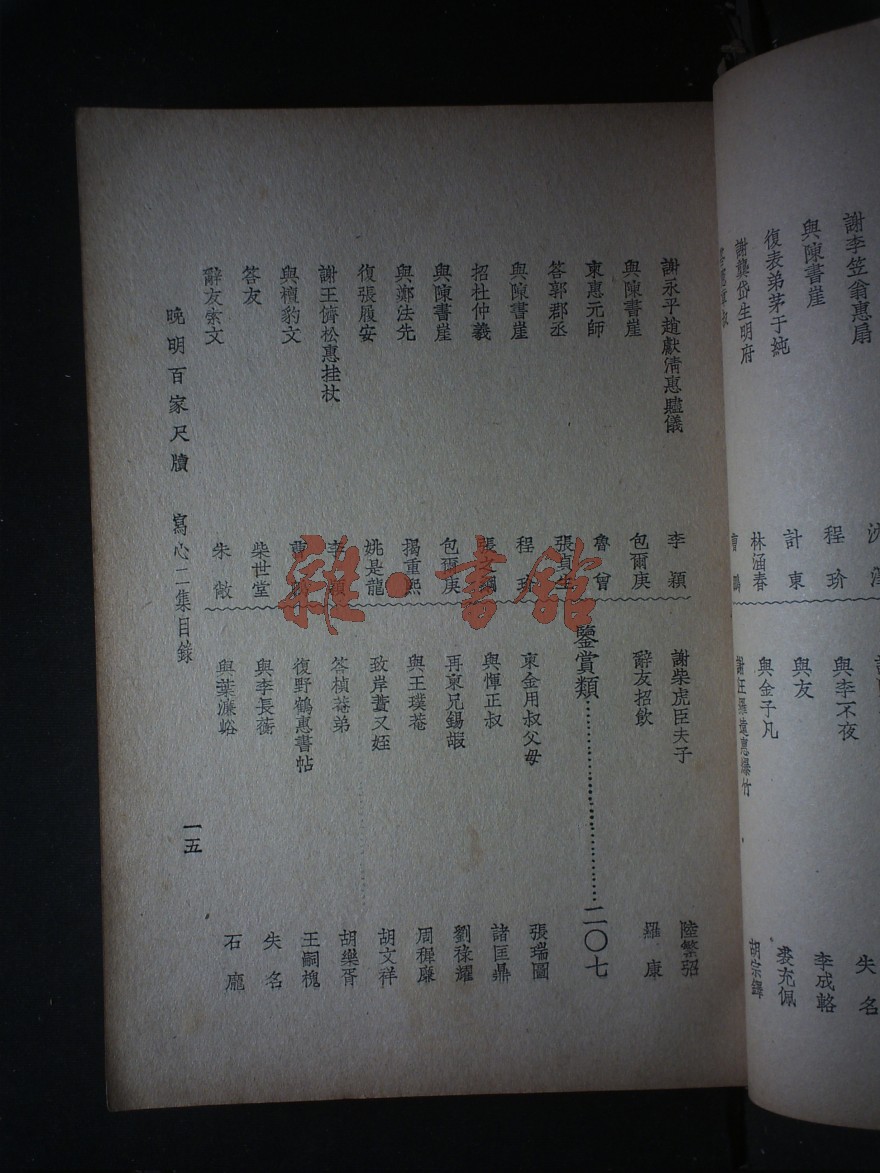 謝李笠翁惠扇
與陳書崖 程玠
復表弟茅于純 計東
謝龔岱生明府 林涵春
與李不夜 李成輅
與友 裘充佩
與金子凡 胡宗鐸
失名
謝永平趙獻清惠贐儀 李穎
與陳書崖 包爾庚
柬惠元師 魯曾
答郭郡丞 張貞生
與陳書崖 程玠
招杜仲羲 張文
與陳書崖 包爾庚
與鄭法先 揭重熙
復張履安 姚是龍
謝王儕松惠挂杖 李穎
與檀豹文
答友 柴世堂
辭友索文 朱敞
謝柴虎臣夫子 陸繁弨
辭友招飲 羅康
鑒賞類 二〇七
柬金用叔父母 張瑞圖
與惲正叔 諸匡鼎
再柬兄錫嘏 劉祿耀
與王璞菴 周稺廉
致岸蕢又姪 胡文祥
答楨菴弟 胡樂胥
復野鶴惠書帖 王嗣槐
與李長蘅 失名
與葉濂峪 石龐
晚明百家尺牘 寫心二集目錄 一五
雜·書館